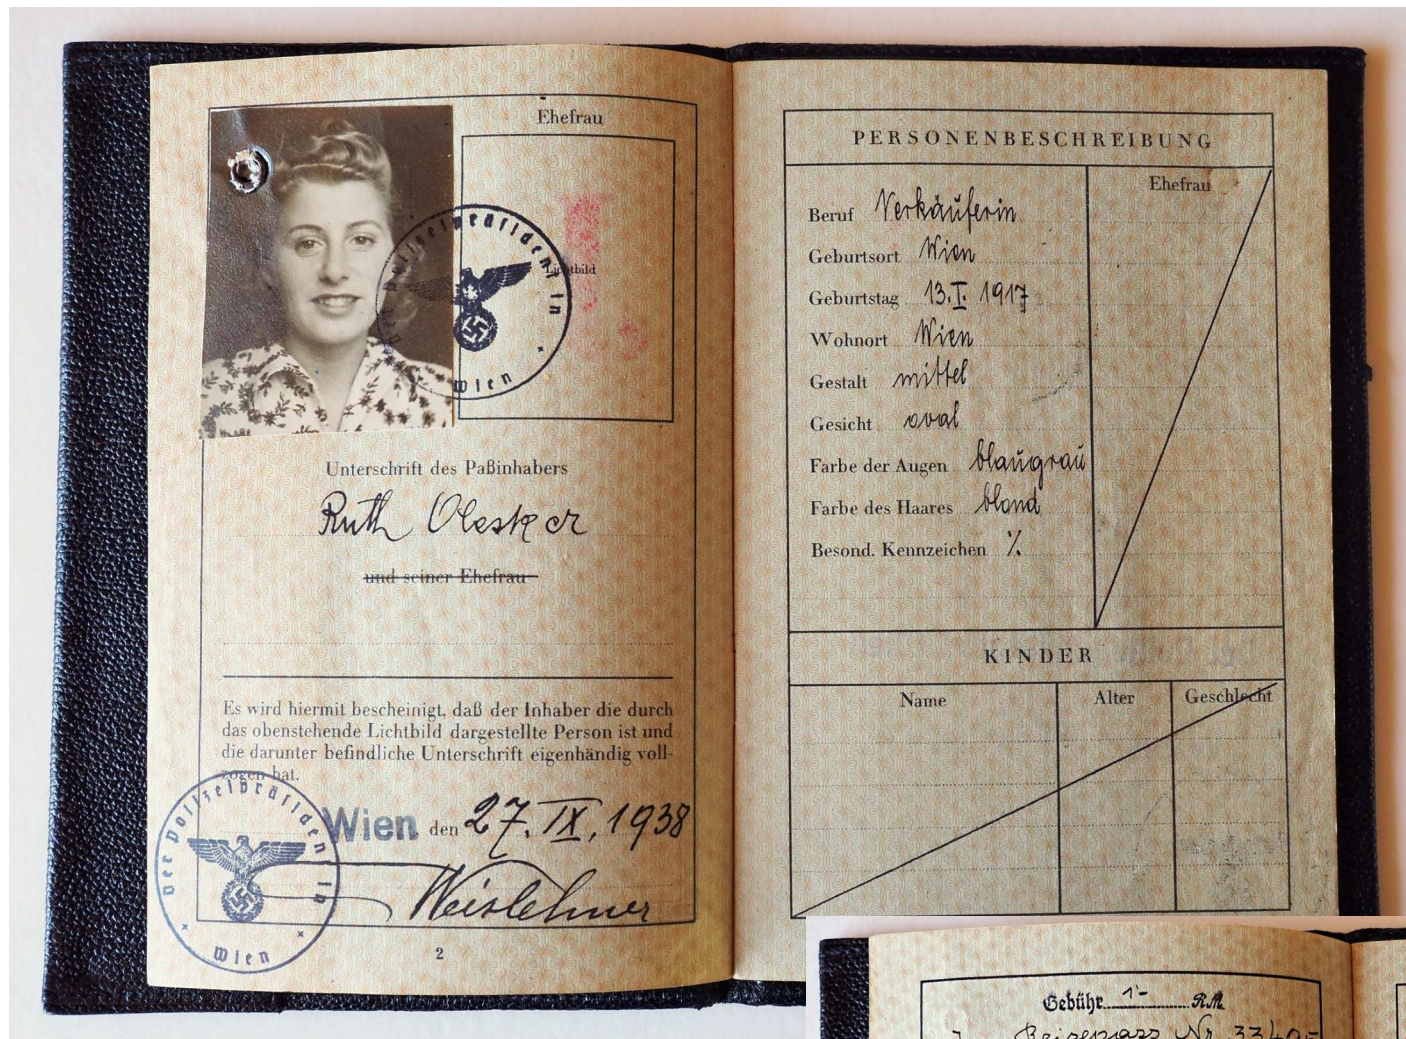 Ehefrau
Lichtbild
Der Polizeipräsident in
Wien
Unterschrift des Paßinhabers
Ruth Olesker
und seiner Ehefrau
Es wird hiermit bescheinigt, daß der Inhaber die durch
das obenstehende Lichtbild dargestellte Person ist und
die darunter befindliche Unterschrift eigenhändig voll-
zogen hat.
Wien den 27. IX. 1938
Der Polizeipräsident in
Wien
2
PERSONENBESCHREIBUNG
Ehefrau
Beruf Verkäuferin
Geburtsort Wien
Geburtstag 13. I. 1917
Wohnort Wien
Gestalt mittel
Gesicht oval
Farbe der Augen blaugrau
Farbe des Haares blond
Besond. Kennzeichen %
KINDER
Name Alter Geschlecht
Gebühr 1- RM
Reisepass Nr.